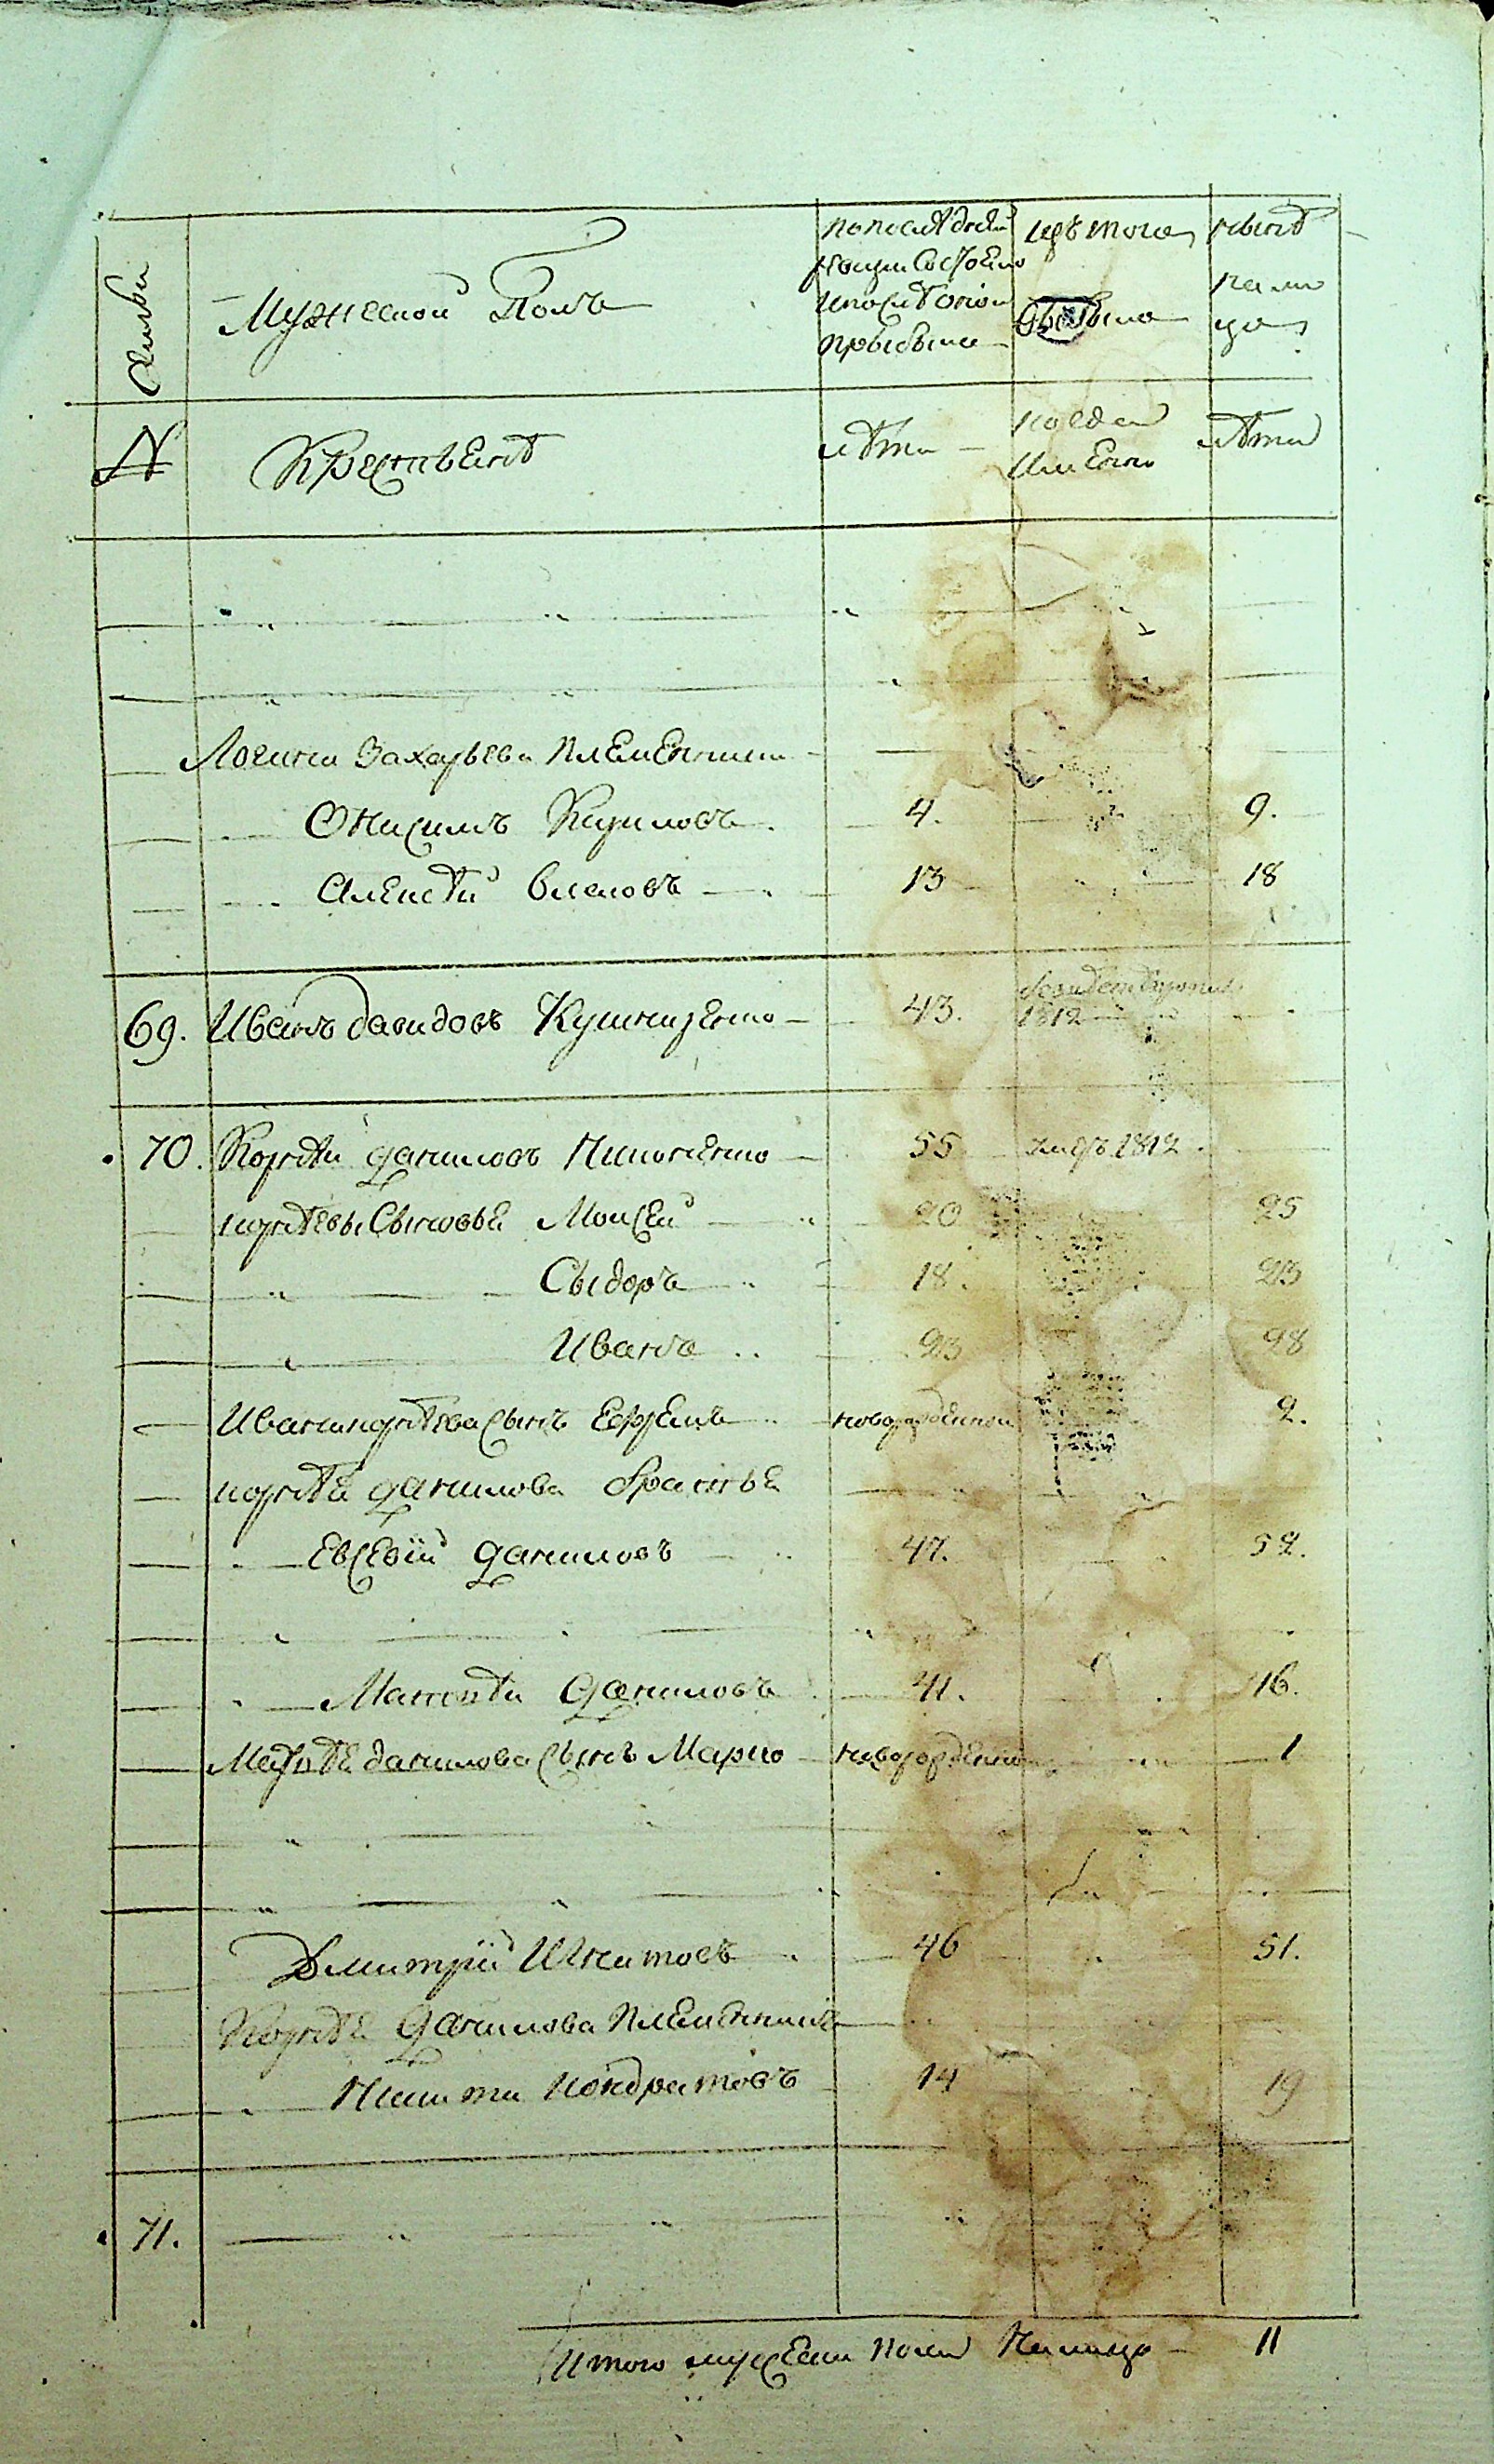 Семьи
Мужеской Полъ
по последней ревизии состояло и после оной прибыло
изъ того выбыло
ныне налицо
№
Крестьяне
лета
когда именно
лета
Логина Захарьева племянники
Онисимъ Кириловъ 4. 9.
Алексей Власовъ 13 18
69. Иванъ давидовъ Кушниренко 43. 1812
70. Корней даниловъ Никоненко 55 умеръ 1812
корнеевы Сыновья Моисей 20 25
Сыдоръ 18. 23
Иванъ 23 28
Ивана корнеева сынъ Ефремъ новорожденной 2.
корнея данилова братья
Евсевїй даниловъ 47. 52.
Матвей даниловъ 41. 46.
Матвея данилова сынъ Марко новорожденной 1
Дмитрїй Игнатовъ 46 51.
Корнея данилова племянникъ
Никита кондратовъ 14 19
71.
Итого мужеска пола налицо 11